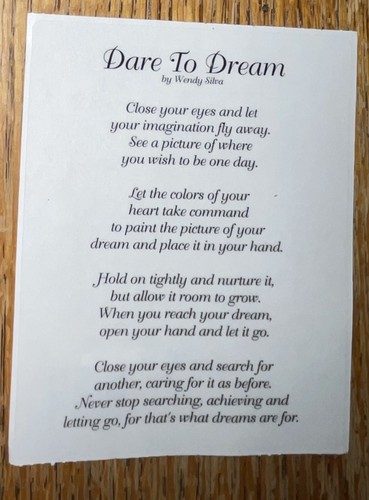 Dare To Dream
by Wendy Silva
Close your eyes and let
your imagination fly away.
See a picture of where
you wish to be one day.
Let the colors of your
heart take command
to paint the picture of your
dream and place it in your hand.
Hold on tightly and nurture it,
but allow it room to grow.
When you reach your dream,
open your hand and let it go.
Close your eyes and search for
another, caring for it as before.
Never stop searching, achieving and
letting go, for that's what dreams are for.